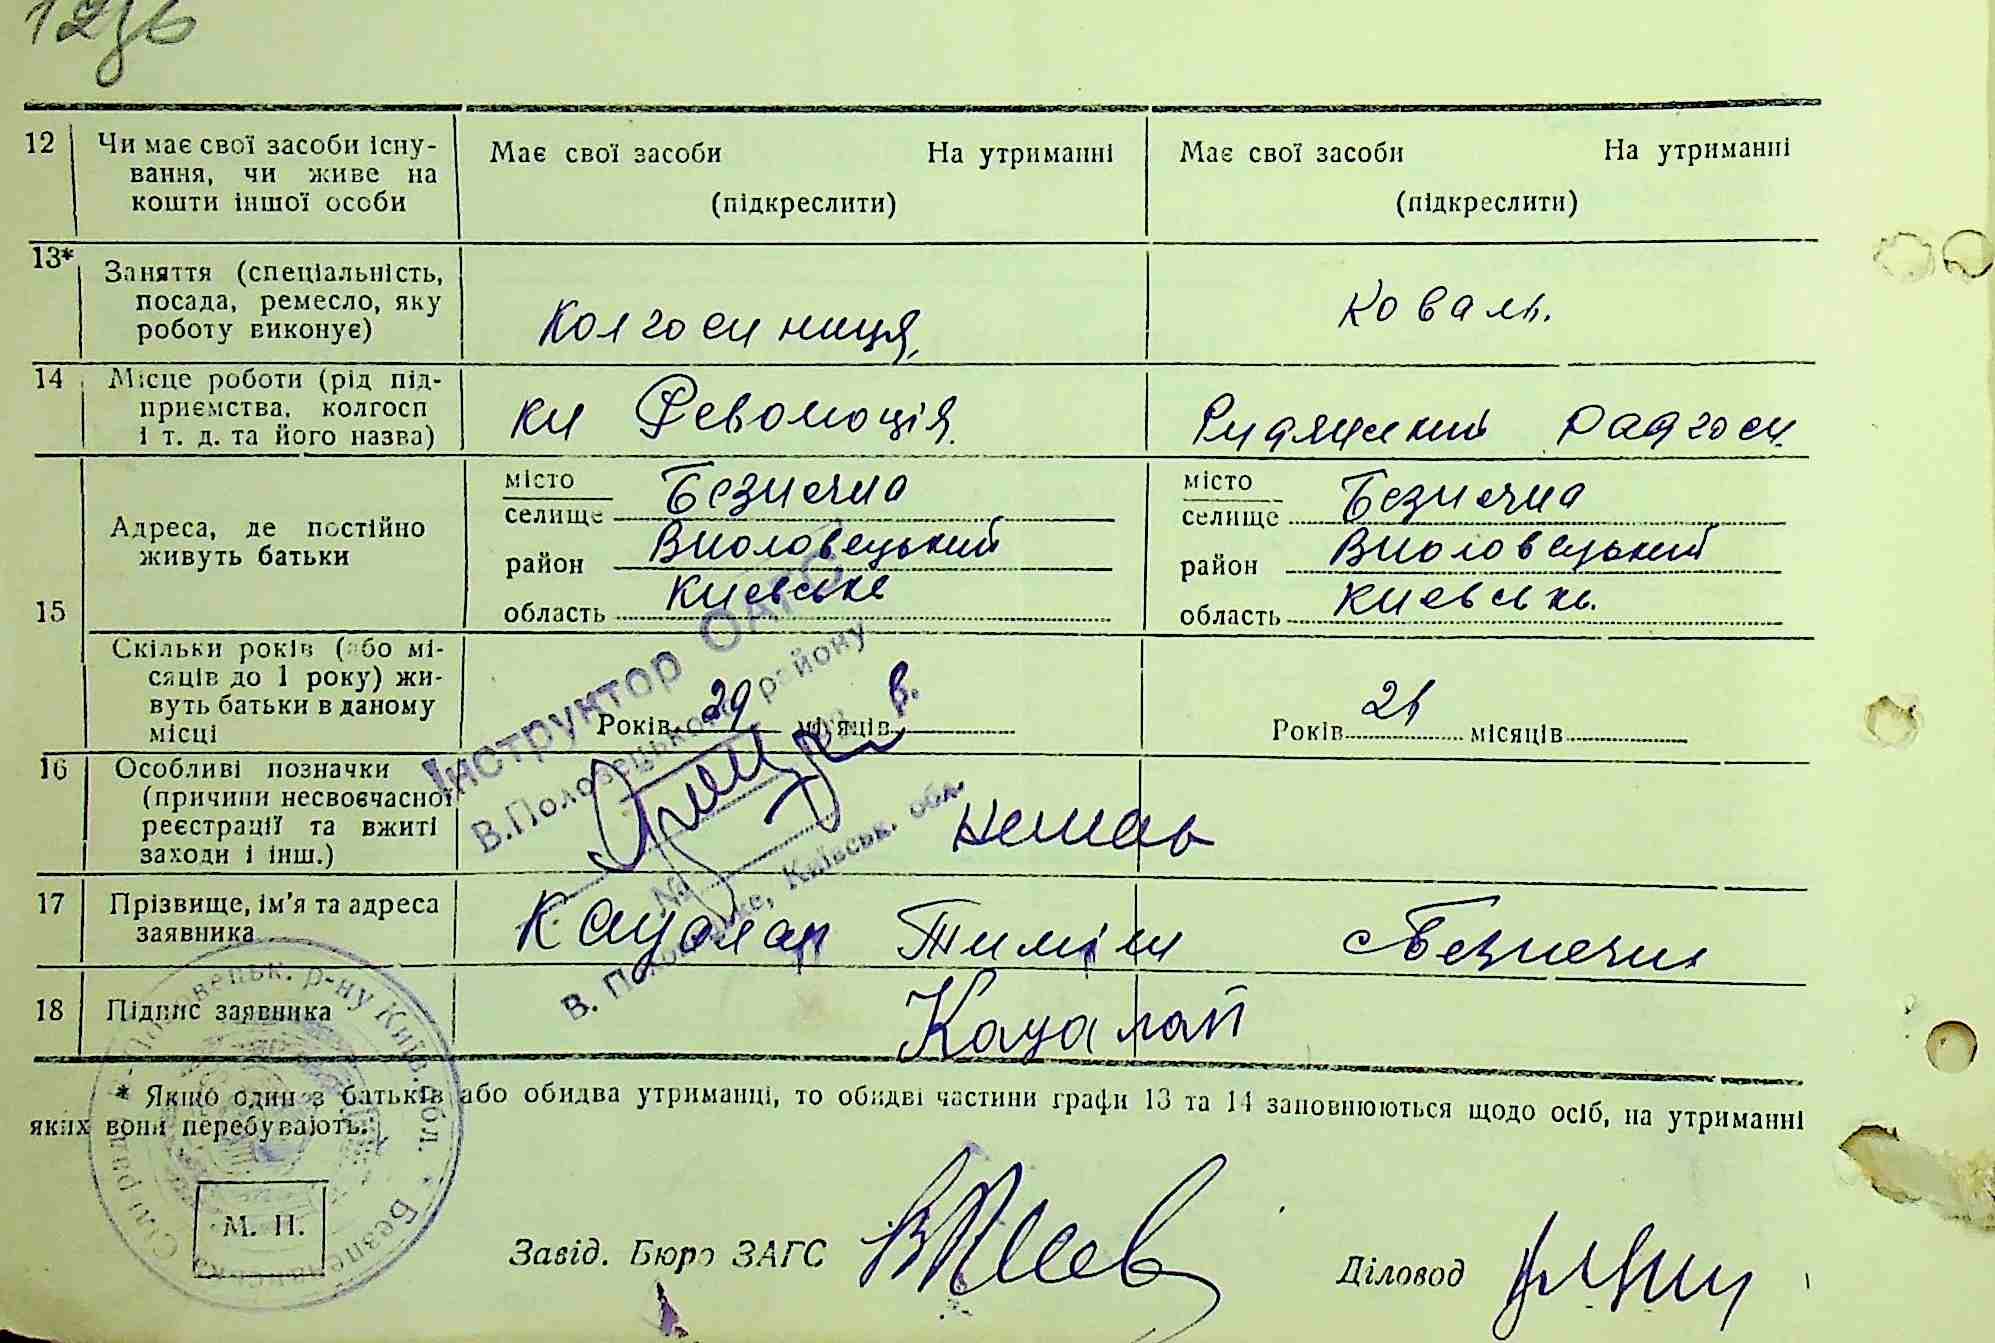 12
Чи має свої засоби існу-
вання, чи живе на
кошти іншої особи
Має свої засоби На утриманні
(підкреслити)
Має свої засоби На утриманні
(підкреслити)
13*
Заняття (спеціальність,
посада, ремесло, яку
роботу виконує)
Колгоспниця,
Коваль.
14
Місце роботи (рід під-
приємства, колгосп
і т. д. та його назва)
кп Революція.
Радгосп.
15
Адреса, де постійно
живуть батьки
місто
селище Безпечна
район Вполовецький
область Киевське
місто
селище Безпечна
район Вполовецький
область Киевськ.
Скільки років (або мі-
сяців до 1 року) жи-
вуть батьки в даному
місці
Років 29 місяців
Років місяців
16
Особливі позначки
(причини несвоєчасної
реєстрації та вжиті
заходи і інш.)
немає
17
Прізвище, ім'я та адреса
заявника
Кацалап Тиміш с Безпечна
18
Підпис заявника
Кацалап
Інструктор ОАГС
В.Половецького району
В. Половецьке, Київськ. обл.
* Якщо один з батьків або обидва утриманні, то обидві частини графи 13 та 14 заповнюються щодо осіб, на утриманні
яких вони перебувають.
М. П.
Завід. Бюро ЗАГС
Діловод